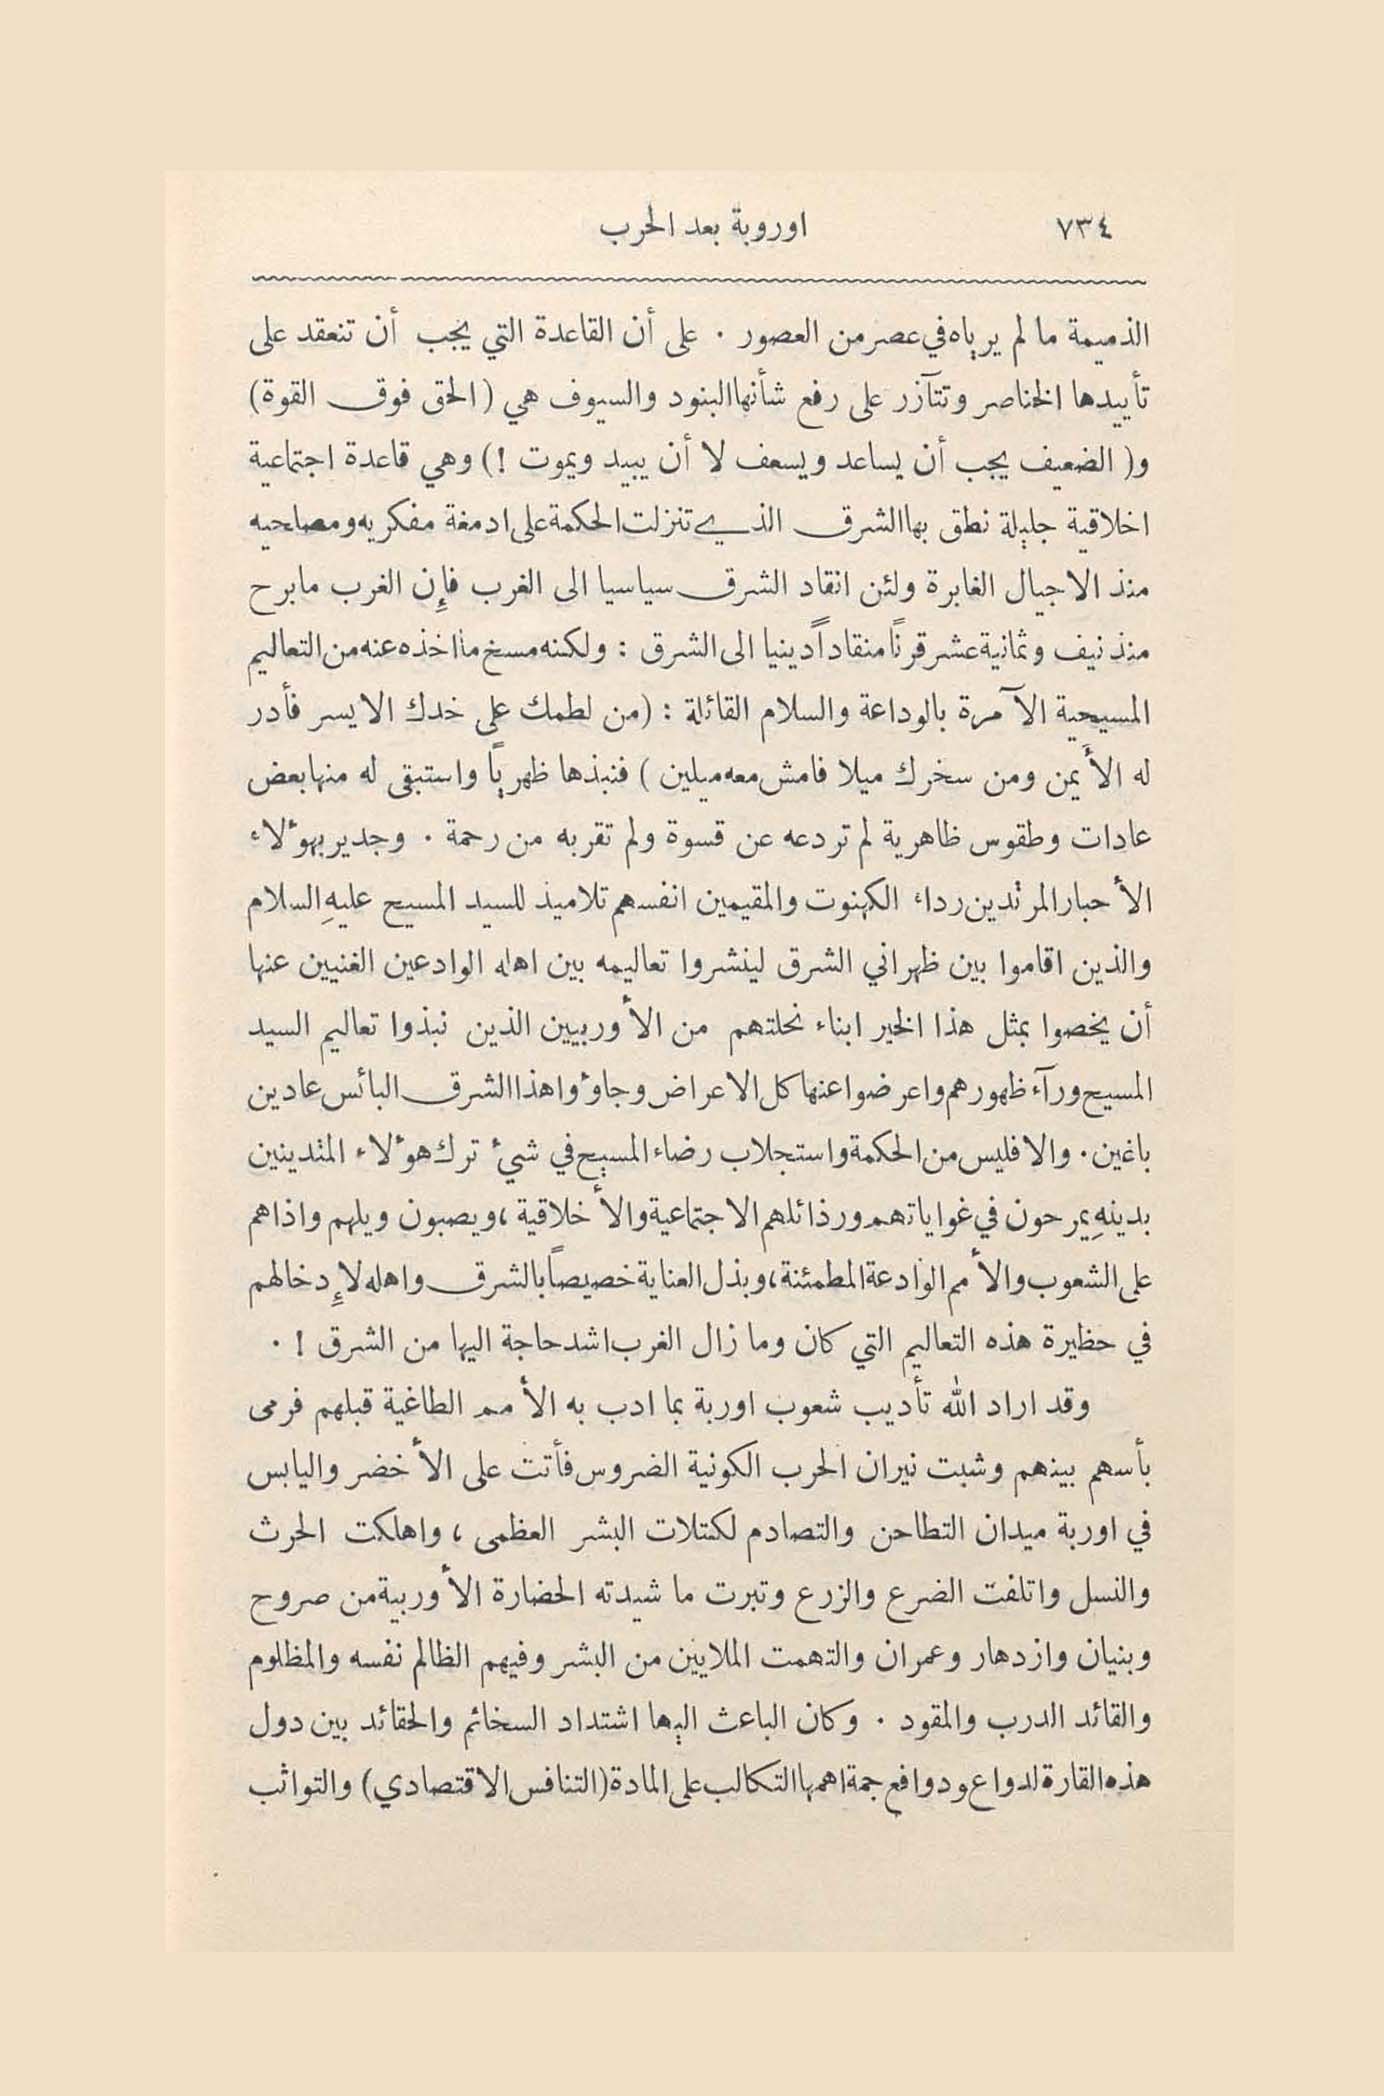 ٧٣٤ اوروبة بعد الحرب
الذميمة ما لم يرياه في عصر من العصور . على أن القاعدة التي يجب أن تنعقد على
تأييدها الخناصر وتتآزر على رفع شأنها البنود والسيوف هي ( الحق فوق القوة )
و( الضعيف يجب أن يساعد ويسعف لا أن يبيد ويموت ! ) وهي قاعدة اجتماعية
اخلاقية جليلة نطق بها الشرق الذي تنزلت الحكمة على ادمغة مفكريه ومصلحيه
منذ الاجيال الغابرة ولئن انقاد الشرق سياسيا الى الغرب فإِن الغرب مابرح
منذ نيف وثمانية عشر قرنًا منقاداً دينيا الى الشرق : ولكنه مسخ ما اخذه عنه من التعاليم
المسيحية الآمرة بالوداعة والسلام القائلة : ( من لطمك على خدك الايسر فأدر
له الأيمن ومن سخرك ميلا فامش معه ميلين ) فنبذها ظهريًا واستبقى له منها بعض
عادات وطقوس ظاهرية لم تردعه عن قسوة ولم تقربه من رحمة . وجدير بهؤلاء
الأحبار المرتدين رداء الكهنوت والمقيمين انفسهم تلاميذ للسيد المسيح عليهِ السلام
والذين اقاموا بين ظهراني الشرق لينشروا تعاليمه بين اهله الوادعين الغنيين عنها
أن يخصوا بمثل هذا الخير ابناء نحلتهم من الأوربيين الذين نبذوا تعاليم السيد
المسيح ورآء ظهورهم واعرضوا عنها كل الاعراض وجاؤوا هذا الشرق البائس عادين
باغين . والا فليس من الحكمة واستجلاب رضاء المسيح في شيء ترك هؤلاء المتدينين
بدينهِ يمرحون في غواياتهم ورذائلهم الاجتماعية والأخلاقية ، ويصبون ويلهم واذاهم
على الشعوب والأمم الوادعة المطمئنة ، وبذل العناية خصيصاً بالشرق واهله لإِدخالهم
في حظيرة هذه التعاليم التي كان وما زال الغرب اشد حاجة اليها من الشرق ! .
وقد اراد الله تأديب شعوب اوربة بما ادب به الأمم الطاغية قبلهم فرمى
بأسهم بينهم وشبت نيران الحرب الكونية الضروس فأتت على الأخضر واليابس
في اوربة ميدان التطاحن والتصادم لكتلات البشر العظمى ، واهلكت الحرث
والنسل واتلفت الضرع والزرع وتبرت ما شيدته الحضارة الأوربية من صروح
وبنيان وازدهار وعمران والتهمت الملايين من البشر وفيهم الظالم نفسه والمظلوم
والقائد الدرب والمقود . وكان الباعث اليها اشتداد السخائم والحقائد بين دول
هذه القارة لدواع ودوافع جمة اهمها التكالب على المادة ( التنافس الاقتصادي ) والتواثب